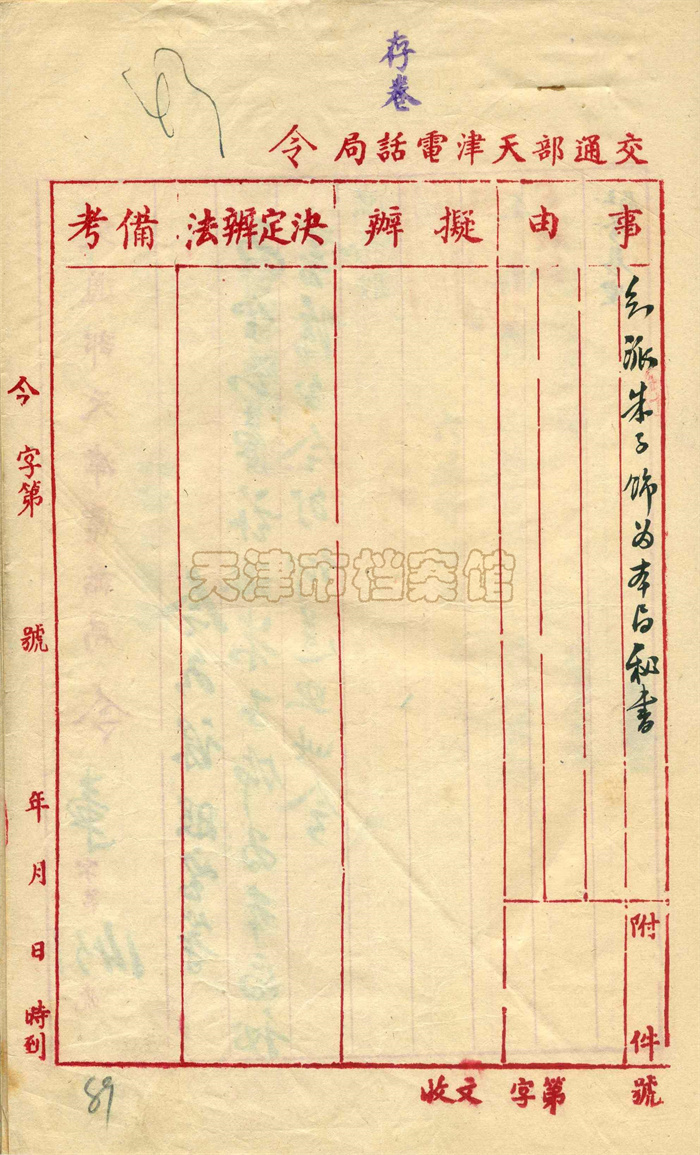 存卷
交通部天津電話局令
事由
擬辦
決定辦法
備考
令派朱子飾为本局秘書
附件
令字第號年月日時到
收文字第號
89
天津市档案馆